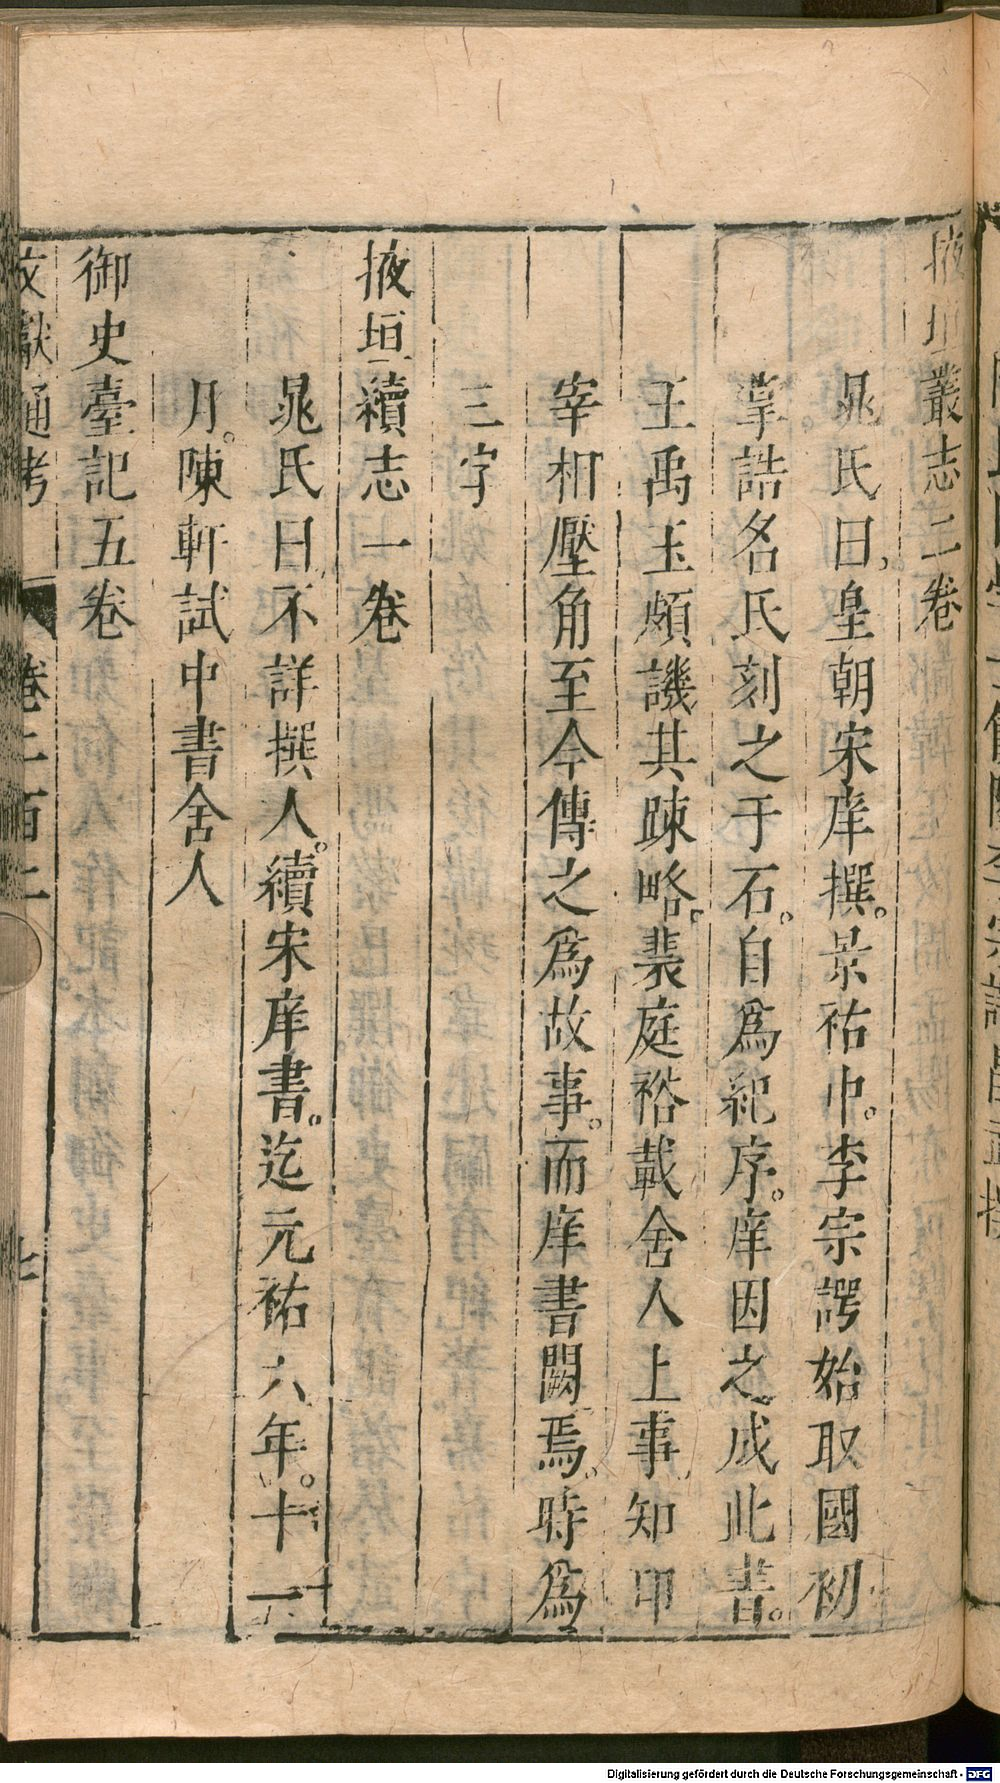 掖垣叢志二卷
晁氏曰皇朝宋庠撰景祐中李宗諤始取國初
掌誥名氏刻之于石自爲紀序庠因之成此書
王禹玉頗譏其踈略裴庭裕載舍人上事知印
宰相壓角至今傳之爲故事而庠書闕焉時爲
三字
掖垣續志一卷
晁氏曰不詳撰人續宋庠書迄元祐六年十一
月陳軒試中書舍人
御史臺記五卷
文獻通考 卷二百二 七
Digitalisierung gefördert durch die Deutsche Forschungsgemeinschaft - DFG